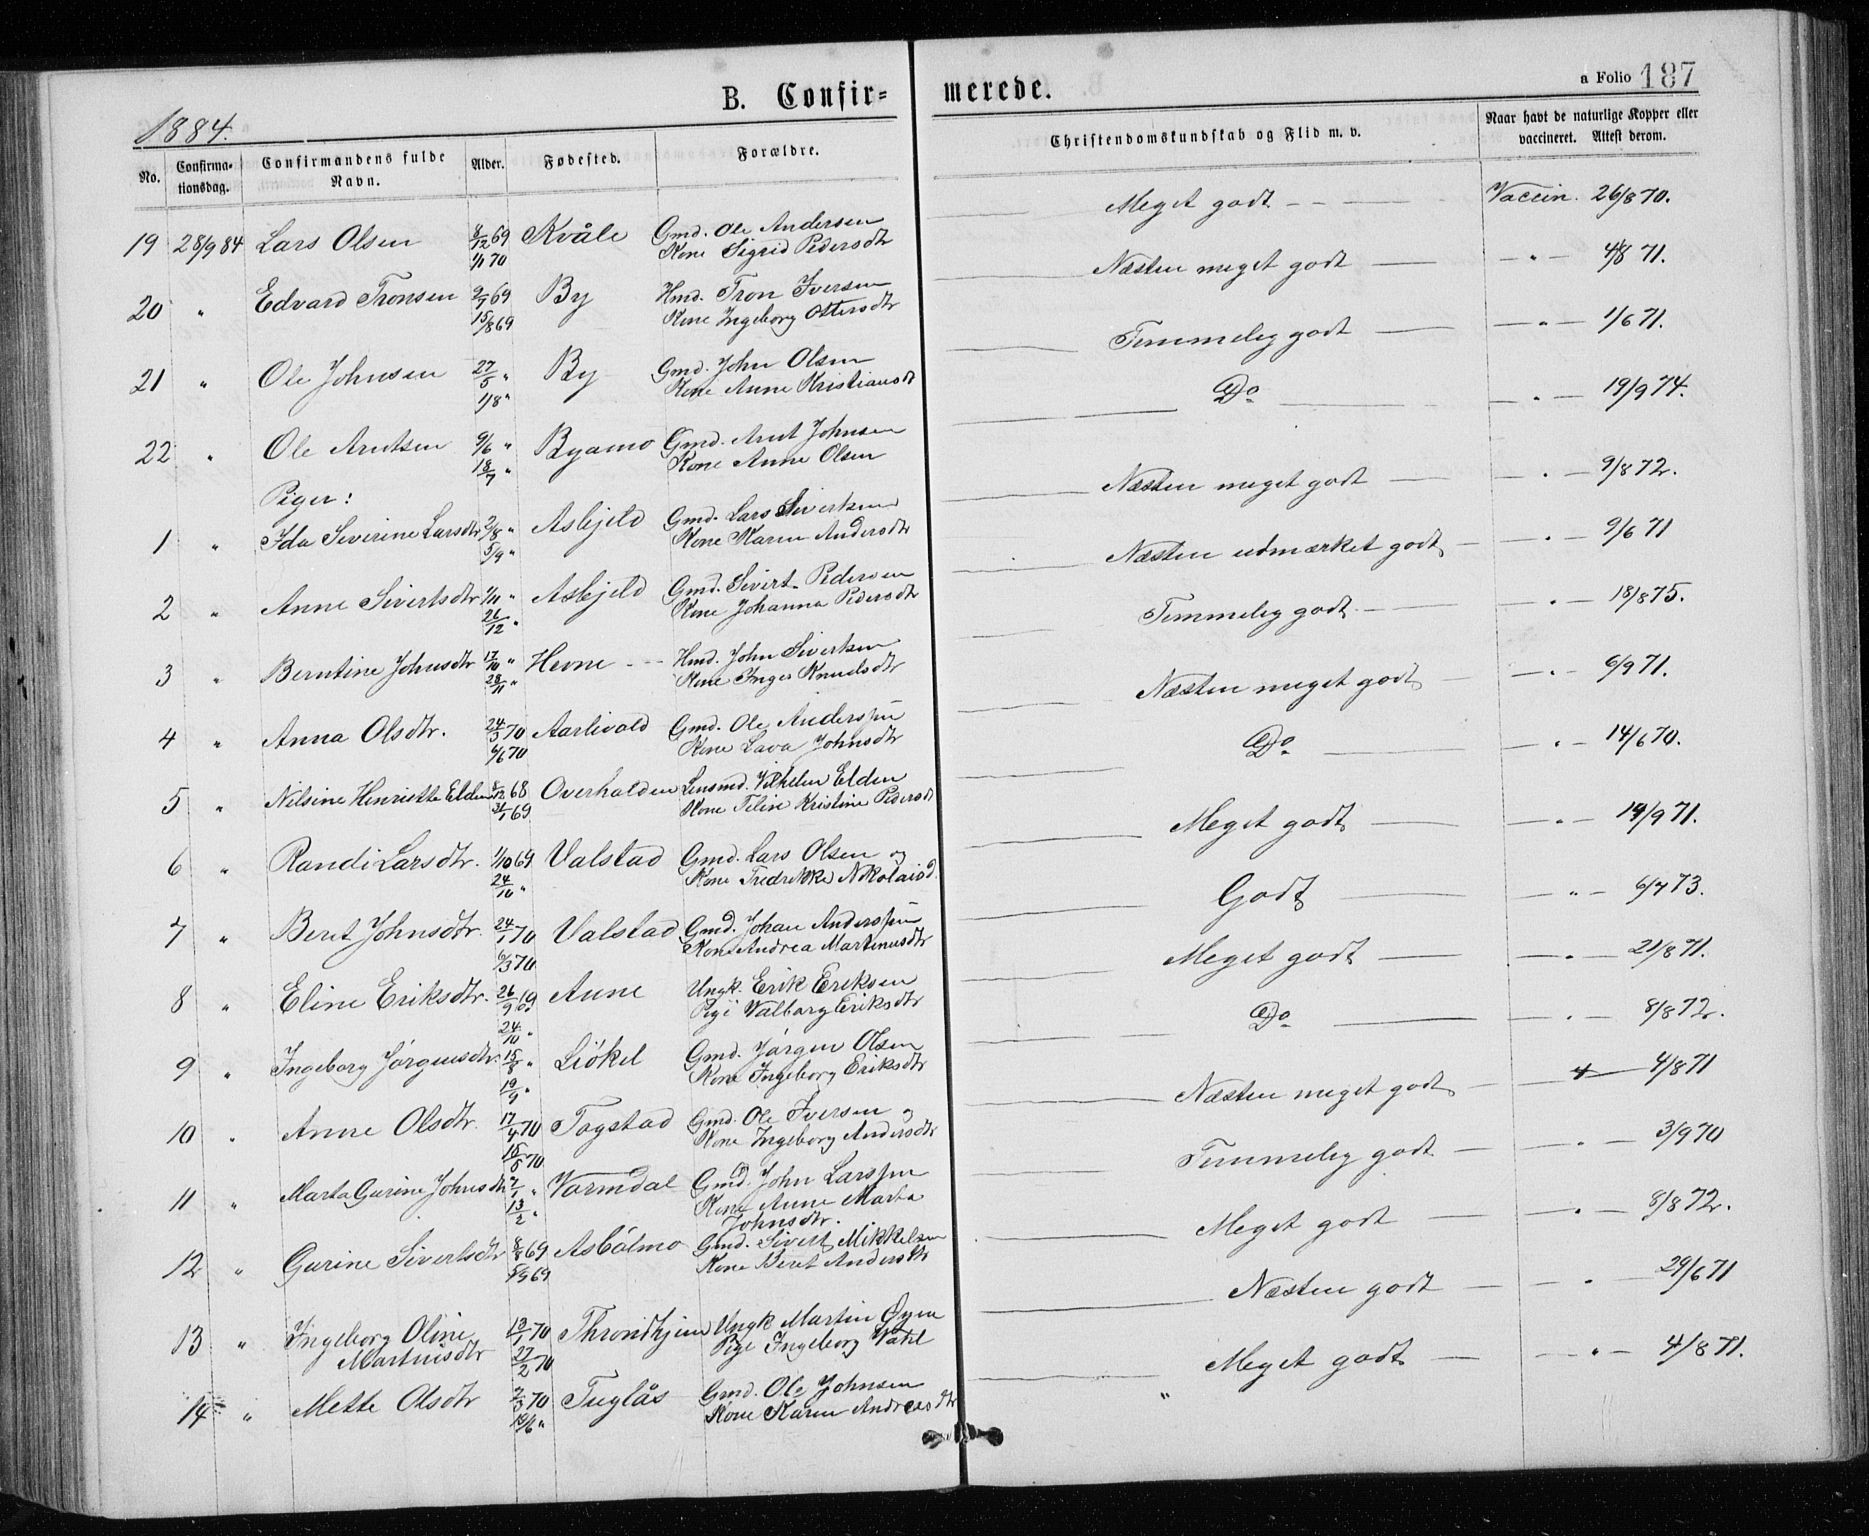 B. Confir-
merede.
a Folio 187
1884.
No.
Confirma-
tionsdag.
Confirmandens fulde
Navn.
Alder.
Fødested.
Forældre.
Christendomskundskab og Flid m. v.
Naar havt de naturlige Kopper eller
vaccineret. Attest derom.
19 28/9 84 Lars Olsen 8/12 69 Kvåle Gmd. Ole Andersen Meget godt Vaccin. 26/8 70.
1/1 70 Kone Sigrid Pedersdtr
20 " Edvard Tronsen 9/7 69 By Hmd. Tron Iversen Næsten meget godt " 4/8 71.
15/8 69 Kone Ingeborg Ottersdtr
21 " Ole Johnsen 27/5 " By Gmd. John Olsen Temmelig godt " 1/6 71.
1/8 " Kone Anne Kristiansdt
22 " Ole Arntsen 9/6 " Byamo Gmd. Arnt Johnsen Do " 19/9 74.
18/7 " Kone Anne Olsen
Piger:
1 " Ida Severine Larsdtr 2/8 " Asbjeld Gmd. Lars Sivertsen Næsten meget godt " 9/8 72.
5/9 " Kone Karen Andersdtr
2 " Anne Sivertsdtr 1/11 " Asbjeld Gmd. Sivert Pedersen Næsten udmærket godt " 9/6 71
26/12 " Kone Johanna Pedersdtr
3 " Berntine Johnsdtr 17/10 " Hevne Hmd. John Sivertsen Temmelig godt " 18/8 75.
28/11 " Kone Inger Knudsdtr
4 " Anna Olsdtr. 24/3 70 Aarlivold Gmd. Ole Anderssen Næsten meget godt " 6/9 71.
4/6 70 Kone Lava Johnsdtr
5 " Nilsine Henriette Elden 8/12 68 Overhalden Lensmd. Vilhelm Elden Do " 14/6 70.
31/1 69 Kone Feline Kristine Pedersdt
6 " Randi Larsdtr. 1/10 69 Valstad Gmd. Lars Olsen og Meget godt " 14/9 71.
24/10 " Kone Fredrikke Nikolaisd
7 " Beret Johnsdtr. 24/1 70 Valstad Gmd. Johan Anderssen Godt " 6/7 73.
6/3 70 Kone Andrea Martinusdtr
8 " Eline Eriksdtr. 26/9 69 Aune Ungk. Erik Eriksen Meget godt " 21/8 71.
24/10 " Pige Valborg Eriksdtr
9 " Ingeborg Jørgensdtr 15/8 " Liøkel Gmd. Jørgen Olsen Do " 8/8 72.
19/9 " Kone Ingeborg Eriksdtr
10 " Anne Olsdtr. 17/4 70 Togstad Gmd. Ole Iversen og Næsten meget godt " 4/8 71
15/5 70 Kone Ingeborg Andersdtr
11 " Marta Gurine Johnsdtr 7/1 " Vormdal Gmd. John Larssen Temmelig godt " 3/9 70
13/2 " Kone Anne Marta
Johnsdtr.
12 " Gurine Sivertsdtr 8/8 69 Asbølmo Gmd. Sivert Mikkelsen Meget godt " 8/8 72.
5/9 69 Kone Beret Andersdtr
13 " Ingeborg Oline 13/1 70 Throndhjem Ungk Martin Øyen Næsten godt " 29/6 71
Martinisdtr 27/2 70 Pige Ingeborg Vahl
14 " Mette Olsdtr 2/3 70 Fuglås Gmd. Ole Johnsen Meget godt " 4/8 71.
12/6 " Kone Karen Andreasdtr